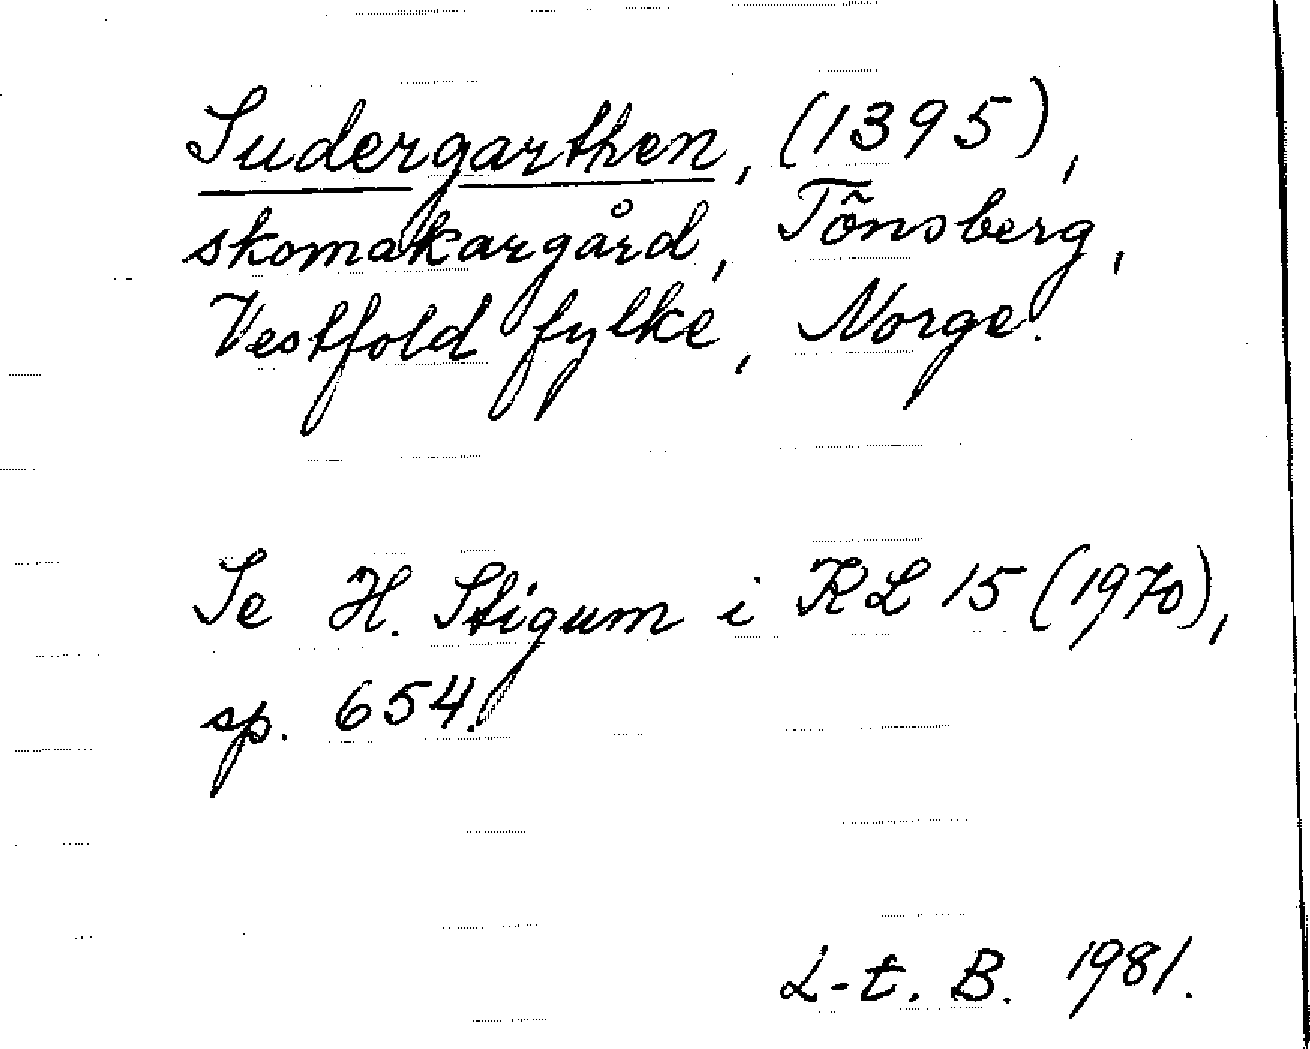 Sudergarthen, (1395),
skomakargård, Tõnsberg,
Vestfold fylke, Norge.
Se H. Stigum i KL 15 (1970),
sp. 654.
L-t. B. 1981.